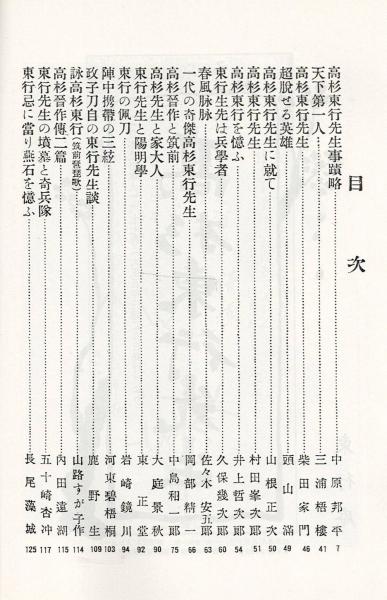 目次
高杉東行先生事蹟略 中原邦平 7
天下第一人 三浦梧樓 41
高杉東行先生 柴田家門 46
超脫せる英雄 頭山滿 49
高杉東行先生に就て 山根正次 50
高杉東行先生 村田峯次郎 51
高杉東行を憶ふ 井上哲次郎 54
東行生先は兵學者 久保幾次郎 60
春風脉脉 佐々木安五郎 63
一代の奇傑高杉東行先生 岡部精一 66
高杉晉作と筑前 中島和一郎 75
高杉先生と家大人 大庭景秋 90
東行先生と陽明學 東正堂 92
東行の佩刀 岩崎鏡川 94
陣中携帶の三絃 河東碧梧桐 103
政子刀自の東行先生談 鹿野生 109
詠高杉東行(筑前琵琶歌) 山路すが子作 114
高杉晉作傳二篇 內田遠湖 115
東行先生の墳墓と奇兵隊 五十崎杏冲 117
東行忌に當り燕石を憶ふ 長尾藻城 125